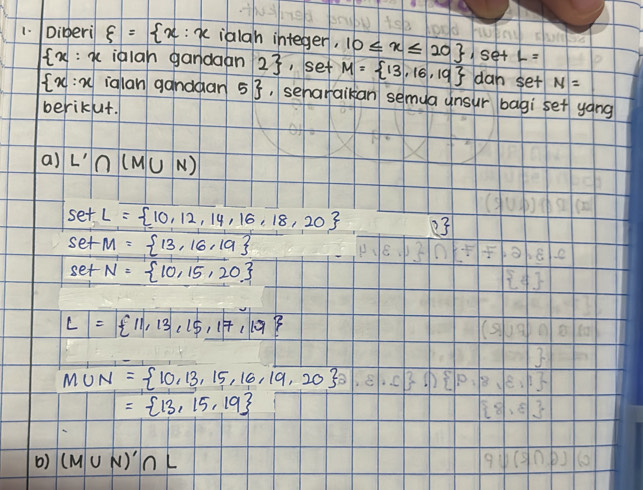 1. Diberi ξ = {x : x ialah integer, 10 ≤ x ≤ 20}, set L =
{x : x ialah gandaan 2}, set M = {13, 16, 19} dan set N =
{x : x ialah gandaan 5}, senaraikan semua unsur bagi set yang
berikut.
a) L' ∩ (M ∪ N)
set L = {10, 12, 14, 16, 18, 20}
set M = {13, 16, 19}
set N = {10, 15, 20}
L = {11, 13, 15, 17, 19}
M ∪ N = {10, 13, 15, 16, 19, 20}
= {13, 15, 19}
b) (M ∪ N)' ∩ L